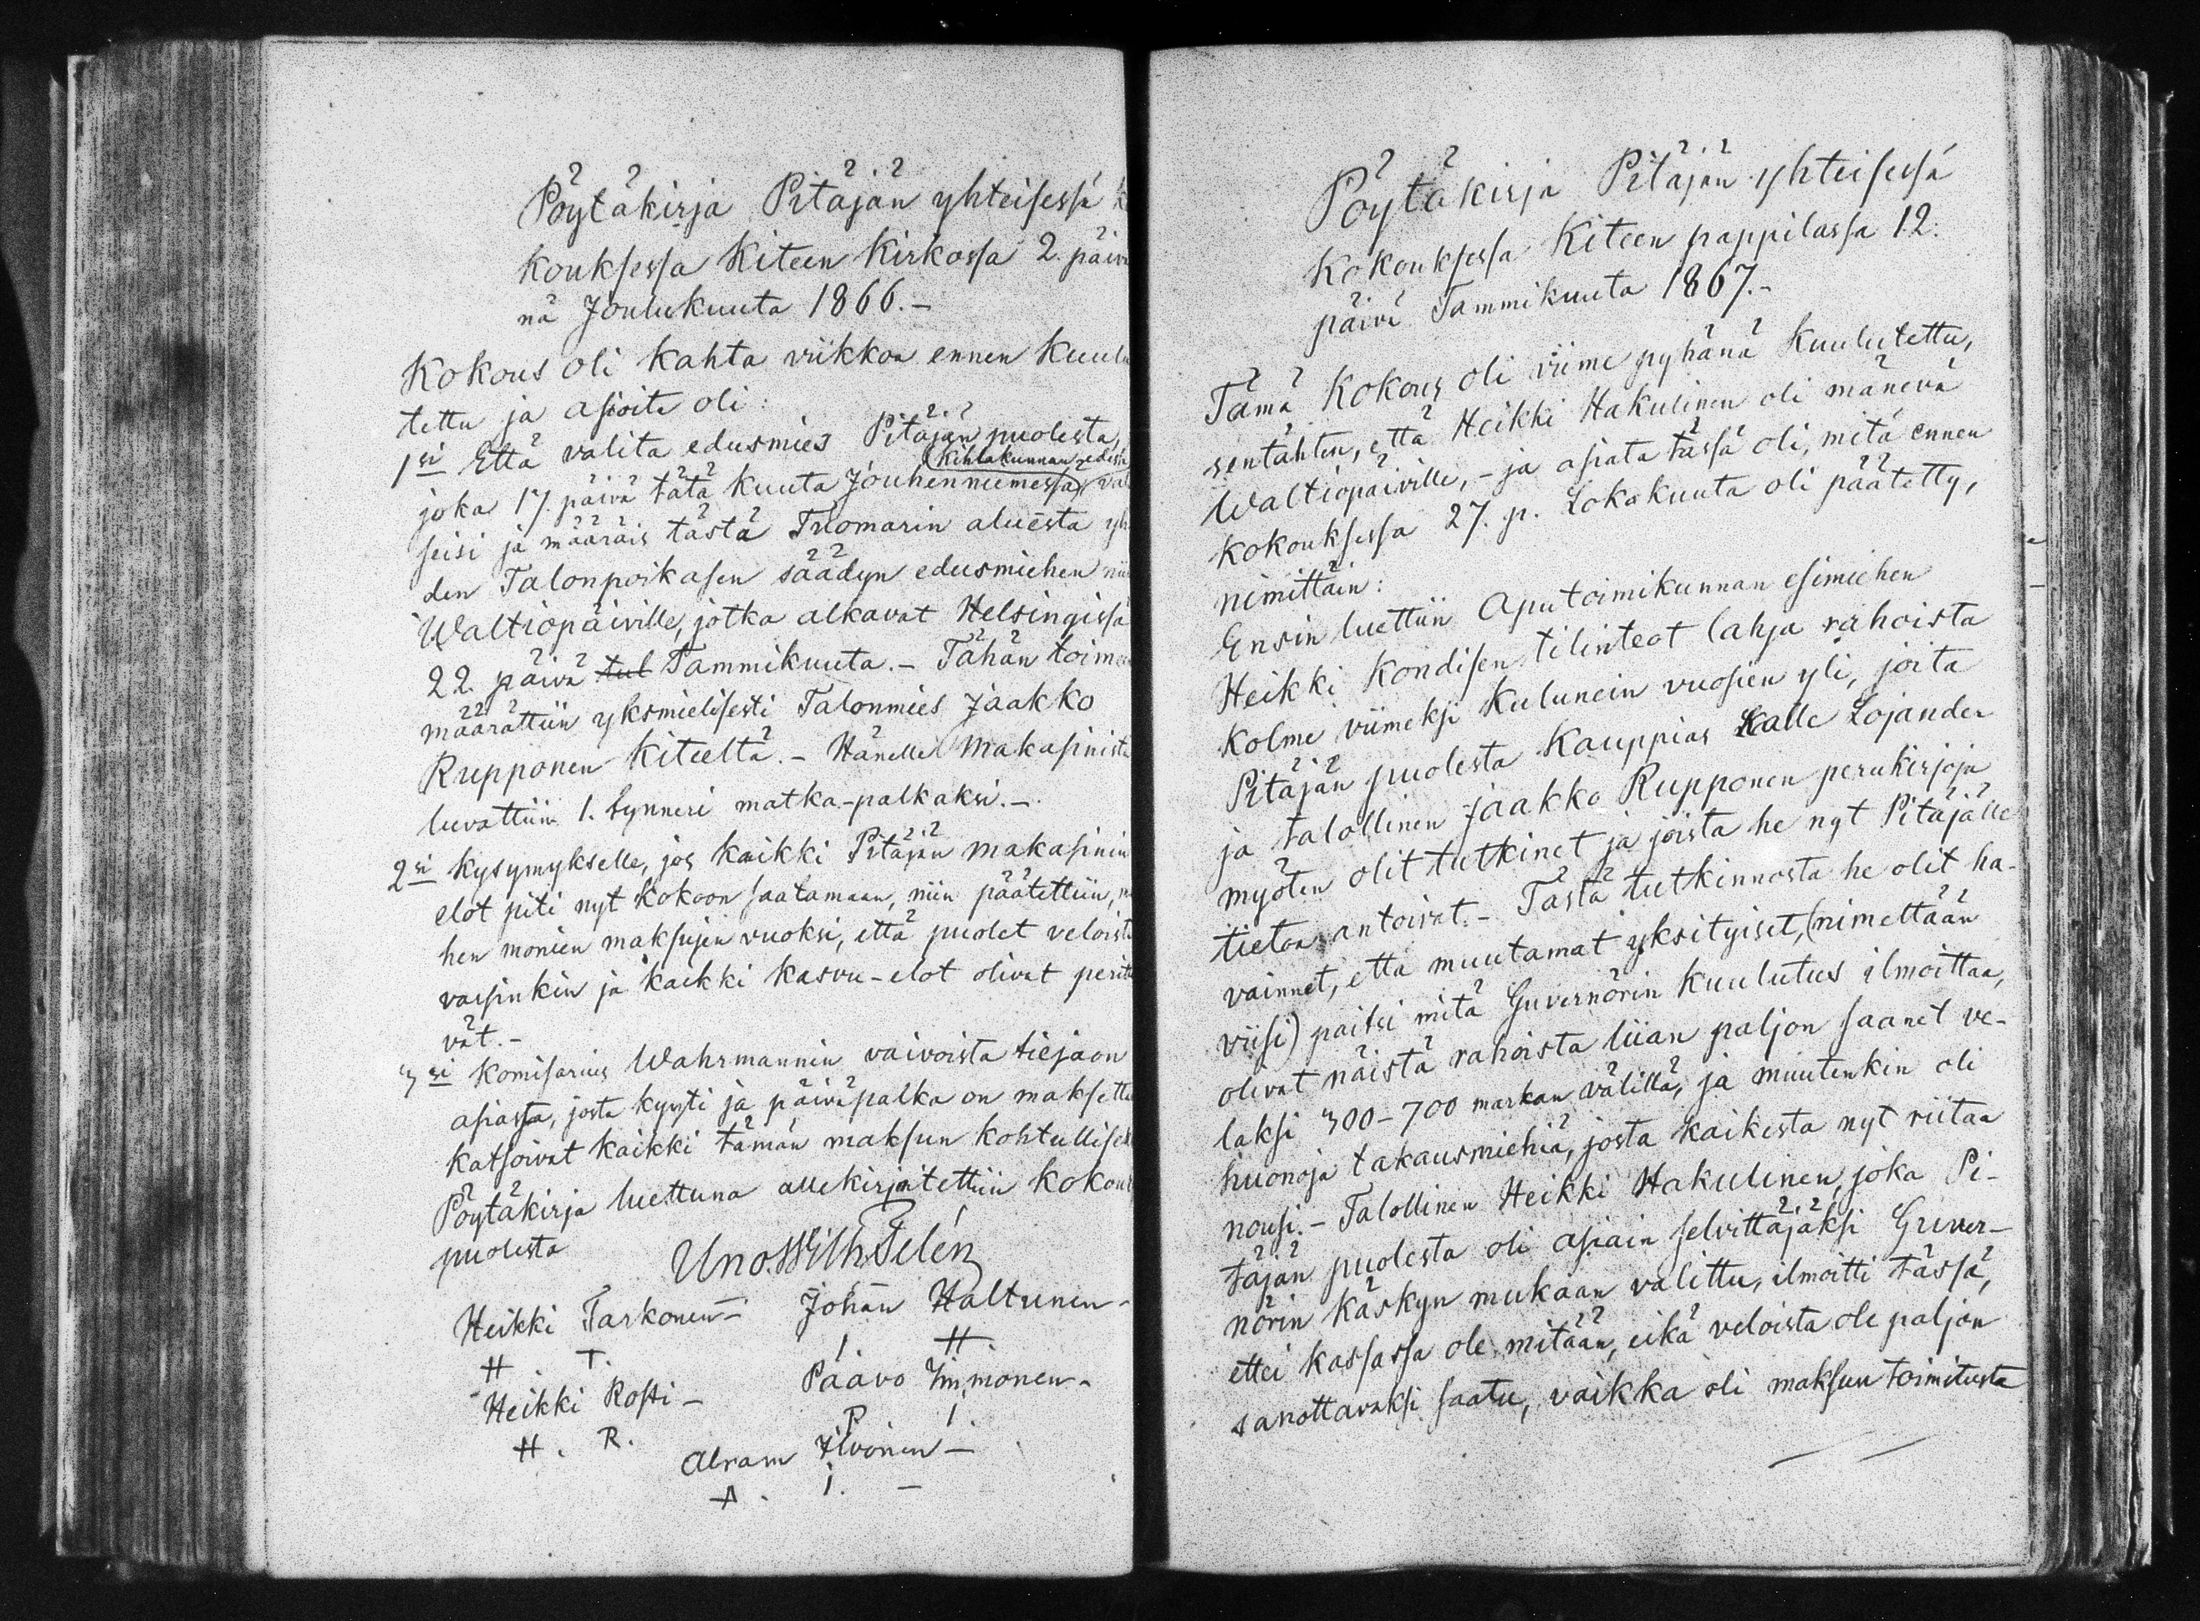 Pöytäkirja Pitäjän yhteisessä
Kouksessa Kiteen Kirkossa 2. päivä
nä Joulukuuta 1866.-
Kokous oli kahta viikkoa ennen Kuulu
tettu ja asioita oli:
1si Että valita edusmies Pitäjän puolesta,
Kihlakunnan edestä
joka 17. päivä tätä kuuta Jouhenniemessä
seisi ja määräis tästä Tuomarin aluesta yh
den Talonpoikasen säädyn edusmiehen
Waltiopäiville, jotka alkavat Helsingissä
22. päivä tul Tammikuuta.- Tähän toime
määrättiin yksmielisesti Talonmies Jaakko
Rupponen Kiteeltä.- Hänelle Makasinista
luvattiin 1. tynneri matka-palkaksi.-
2si Kysymykselle, jos kaikki Pitäjän makasinin
elot piti nyt Kokoon saatamaan, niin päätettiin,
hen monien maksujen vuoksi, että puolet veloista
varsinkin ja kaikki kasvu-elot olivat perittä
vät.-
3si Komisarius Wahrmannin vaivoista tiejaon
asiassa, josta kyyti ja päiväpalka on maksettu
katsoivat kaikki tämän maksun kohtullisek
Pöytäkirja luettuna allekirjoitettiin kokouk
puolesta
Uno. Wilh. Telén
Heikki Tarkonen- Johan Haltunen-
H. T. J. H.
Heikki Rossi- Paavo Immonen-
H. R. P. I.
Abram Ilvonen-
A. I.-
Pöytäkirja Pitäjän yhteisessä
Kokouksessa Kiteen pappilassa 12.
päivä Tammikuuta 1867.-
Tämä Kokous oli viime pyhänä Kuulutettu,
sentähten, että Heikki Hakulinen oli mänevä
Waltiopäiville, - ja asiata tässä oli, mitä ennen
Kokouksessa 27. p. Lokakuuta oli päätetty,
nimittäin:
Ensin luettiin Aputoimikunnan esimiehen
Heikki Kondisen tilinteot lahja rahoista
Kolme viimeksi Kulunein vuosien yli, joita
Pitäjän puolesta Kauppias Kalle Lojander
ja talollinen Jaakko Rupponen perukirjoja
myöten olit tutkinet ja joista he nyt Pitäjälle
tietoa antoivat.- Tästä tutkinnosta he olit ha-
vainnet, että muutamat yksityiset, (nimettään
viisi) paitsi mitä Guvernörin Kuulutus ilmoittaa,
olivat näistä rahoista liian paljon saanet ve-
laksi 300-700 markan välillä, ja muutenkin oli
huonoja takausmiehiä, josta kaikesta nyt riitaa
nousi.- Talollinen Heikki Hakulinen, joka Pi-
täjän puolesta oli asiain selvittäjäksi Guver-
nörin Käskyn mukaan valittu, ilmoitti tässä,
ettei kassassa ole mitään, eikä veloista ole paljon
sanottavaksi saatu, vaikka oli maksuu toimitusta